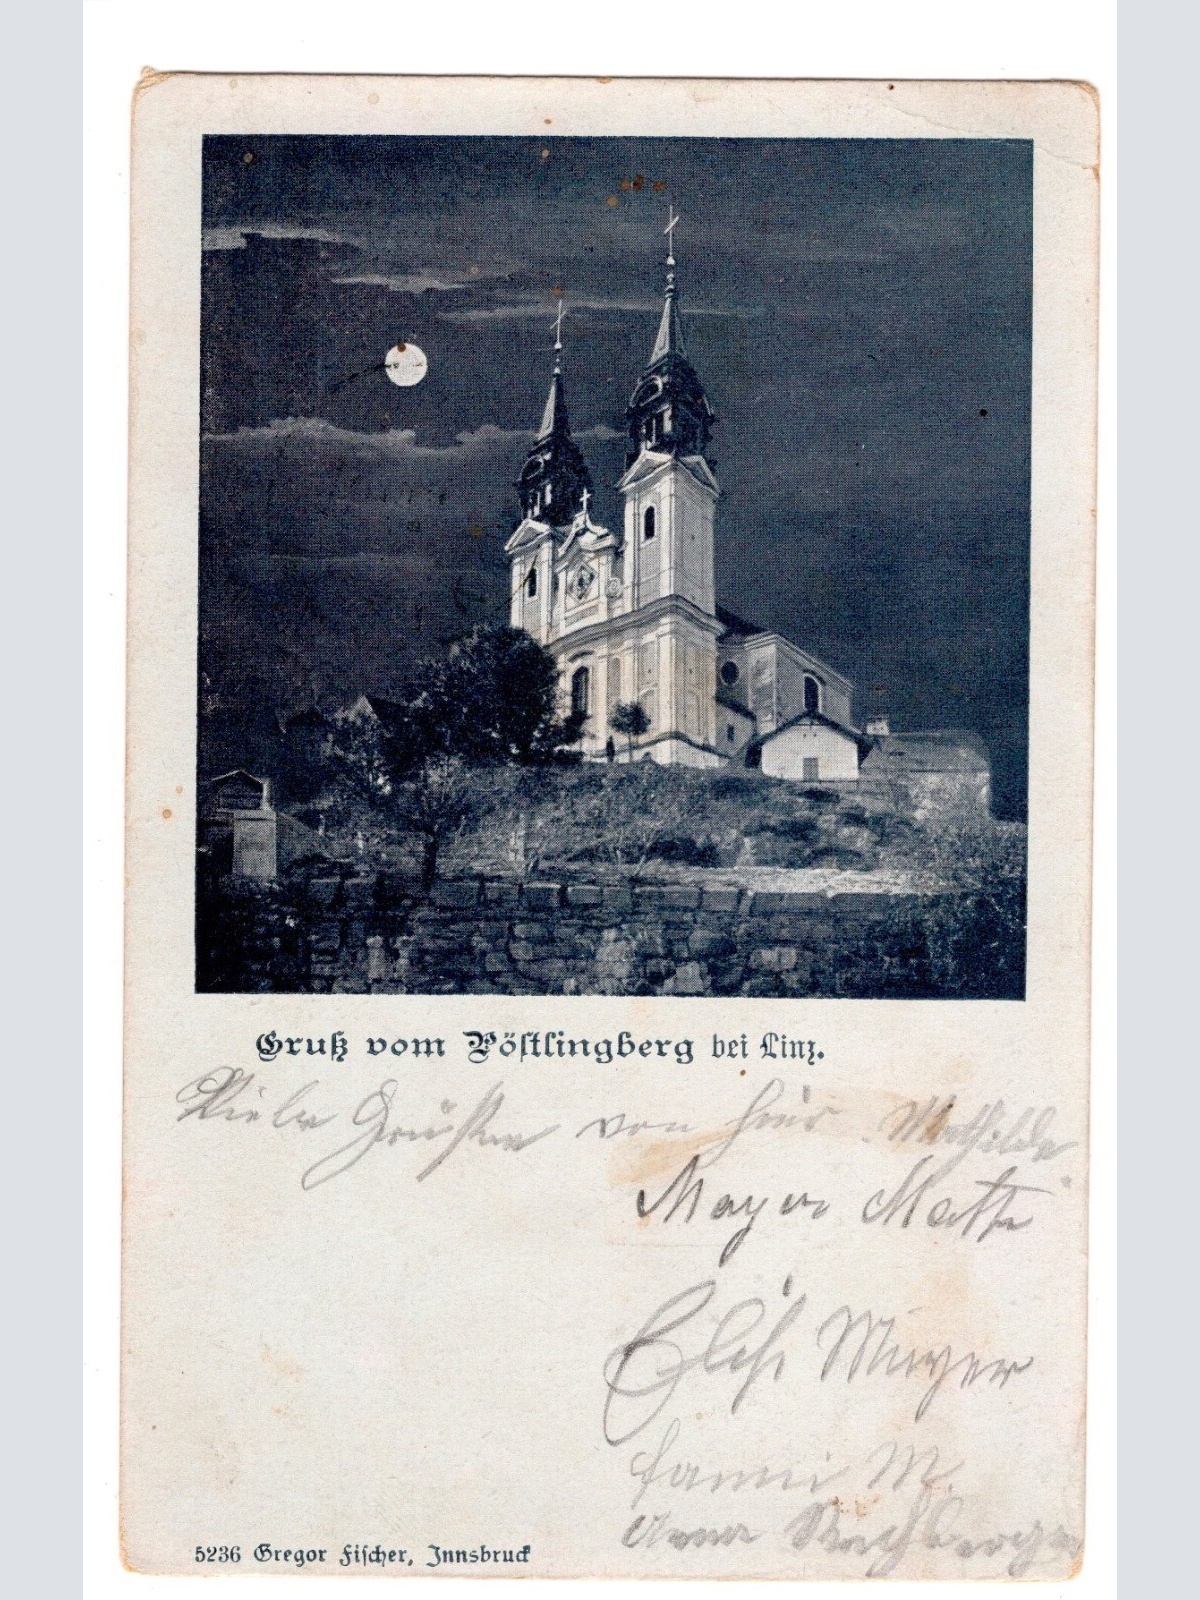 Gruß vom Pöstlingberg bei Linz.
Viele Grüße von hier Mathilde
Mayer
Elsi Mayer
Fanni M.
Anna
5236 Gregor Fischer, Innsbruck